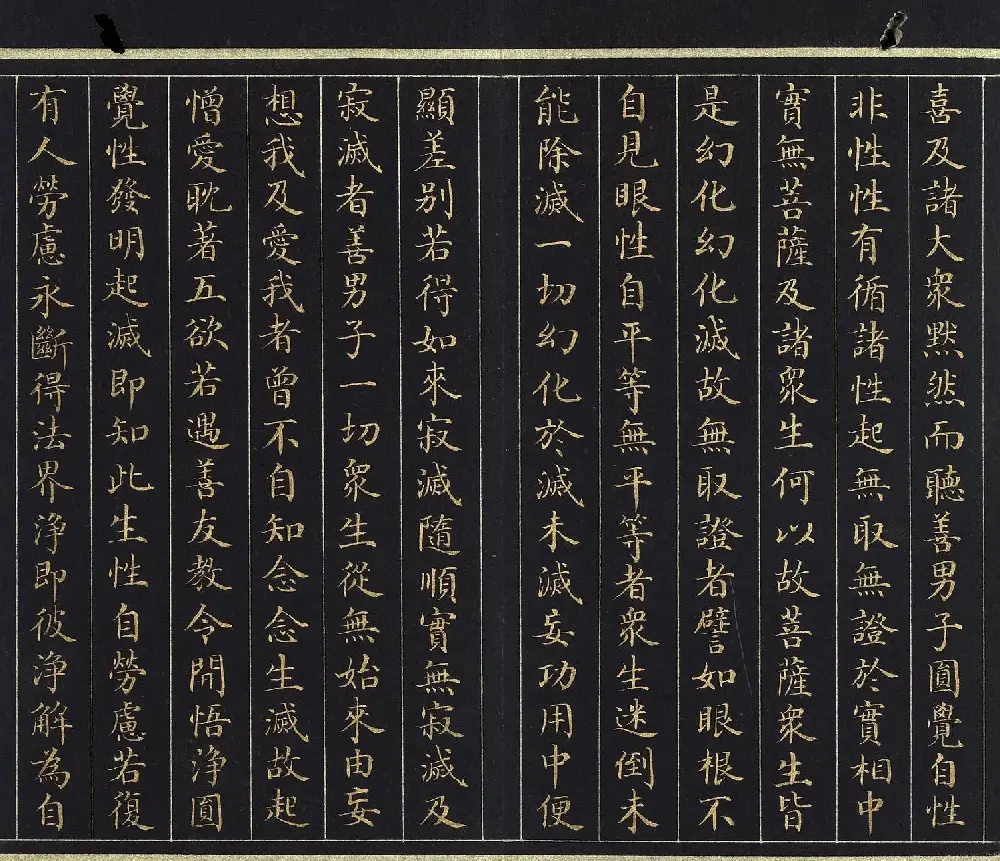 喜及諸大衆默然而聽善男子圓覺自性
非性性有循諸性起無取無證於實相中
實無菩薩及諸衆生何以故菩薩衆生皆
是幻化幻化滅故無取證者譬如眼根不
自見眼性自平等無平等者衆生迷倒未
能除滅一切幻化於滅未滅妄功用中便
顯差别若得如來寂滅隨順實無寂滅及
寂滅者善男子一切衆生從無始來由妄
想我及愛我者曾不自知念念生滅故起
憎愛耽著五欲若遇善友教令開悟淨圓
覺性發明起滅即知此生性自勞慮若復
有人勞慮永斷得法界淨即彼淨解為自